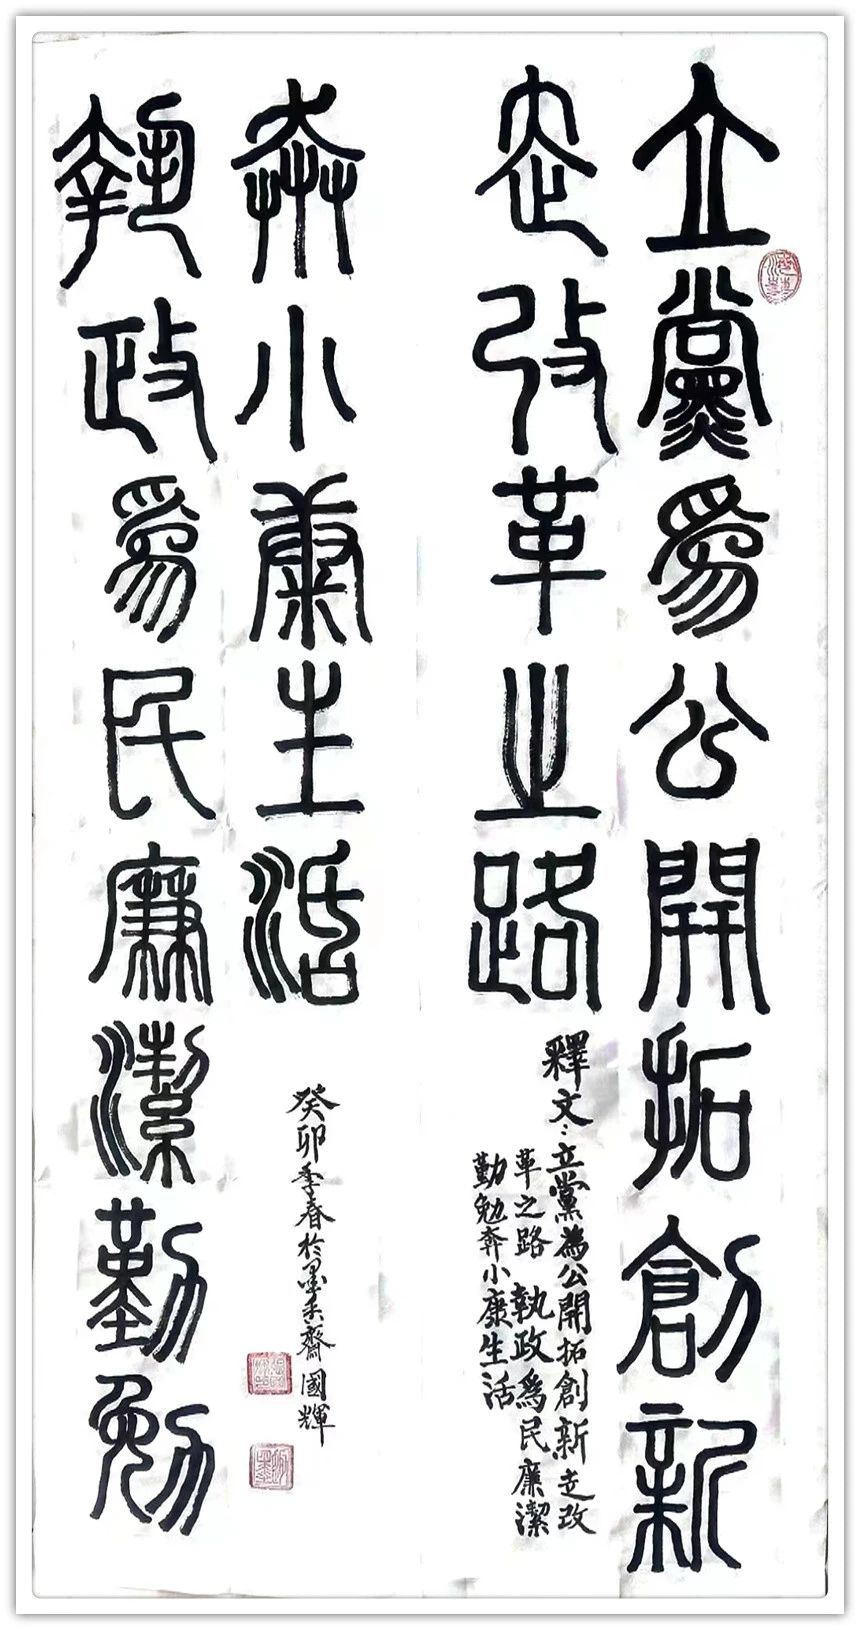 立黨爲公開拓創新
走改革之路
釋文：立黨為公開拓創新走改
革之路 執政爲民廉潔
勤勉奔小康生活
執政爲民廉潔勤勉
奔小康生活
癸卯季春於墨香齋國輝